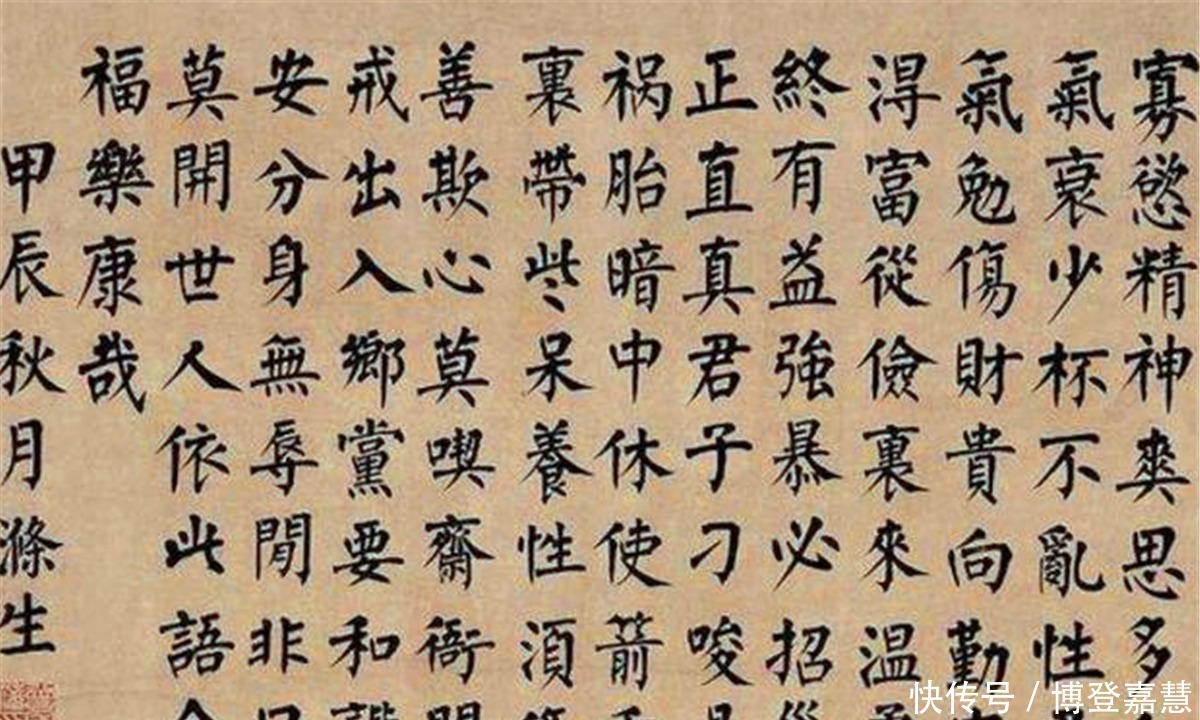 寡慾精神爽思多
氣衰少杯不亂性
氣勉傷財貴向勤
淂富從儉裏來温
終有益強暴必招
正直真君子刁唆
祸胎暗中休使箭
裏帶些呆養性湏
善欺心莫喫齋衙
戒出入鄉黨要和
安分身無辱閒非
莫開世人依此語
福樂康哉
甲辰秋月滌生
快传号 / 博登嘉慧